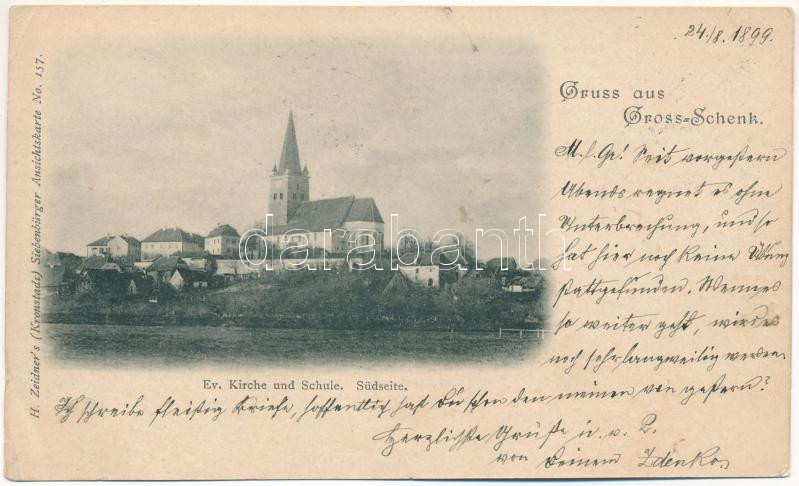 24./8. 1899.
Gruss aus
Gross-Schenk.
M. l. Gr! Seit vorgestern
Abends regnet es ohne
Unterbrechung, und so
hat hier noch keine Übung
stattgefunden. Wenn es
so weiter geht, wird es
noch sehr langweilig werden.
H. Zeidner's (Kronstadt) Siebenbürger Ansichtskarte No. 157.
darabanth
Ev. Kirche und Schule. Südseite.
Ich schreibe fleißig Briefe, hoffentlich hast Du schon den meinen von gestern?
Herzlichste Grüße u. v. P.
von Deinem Zdenko.